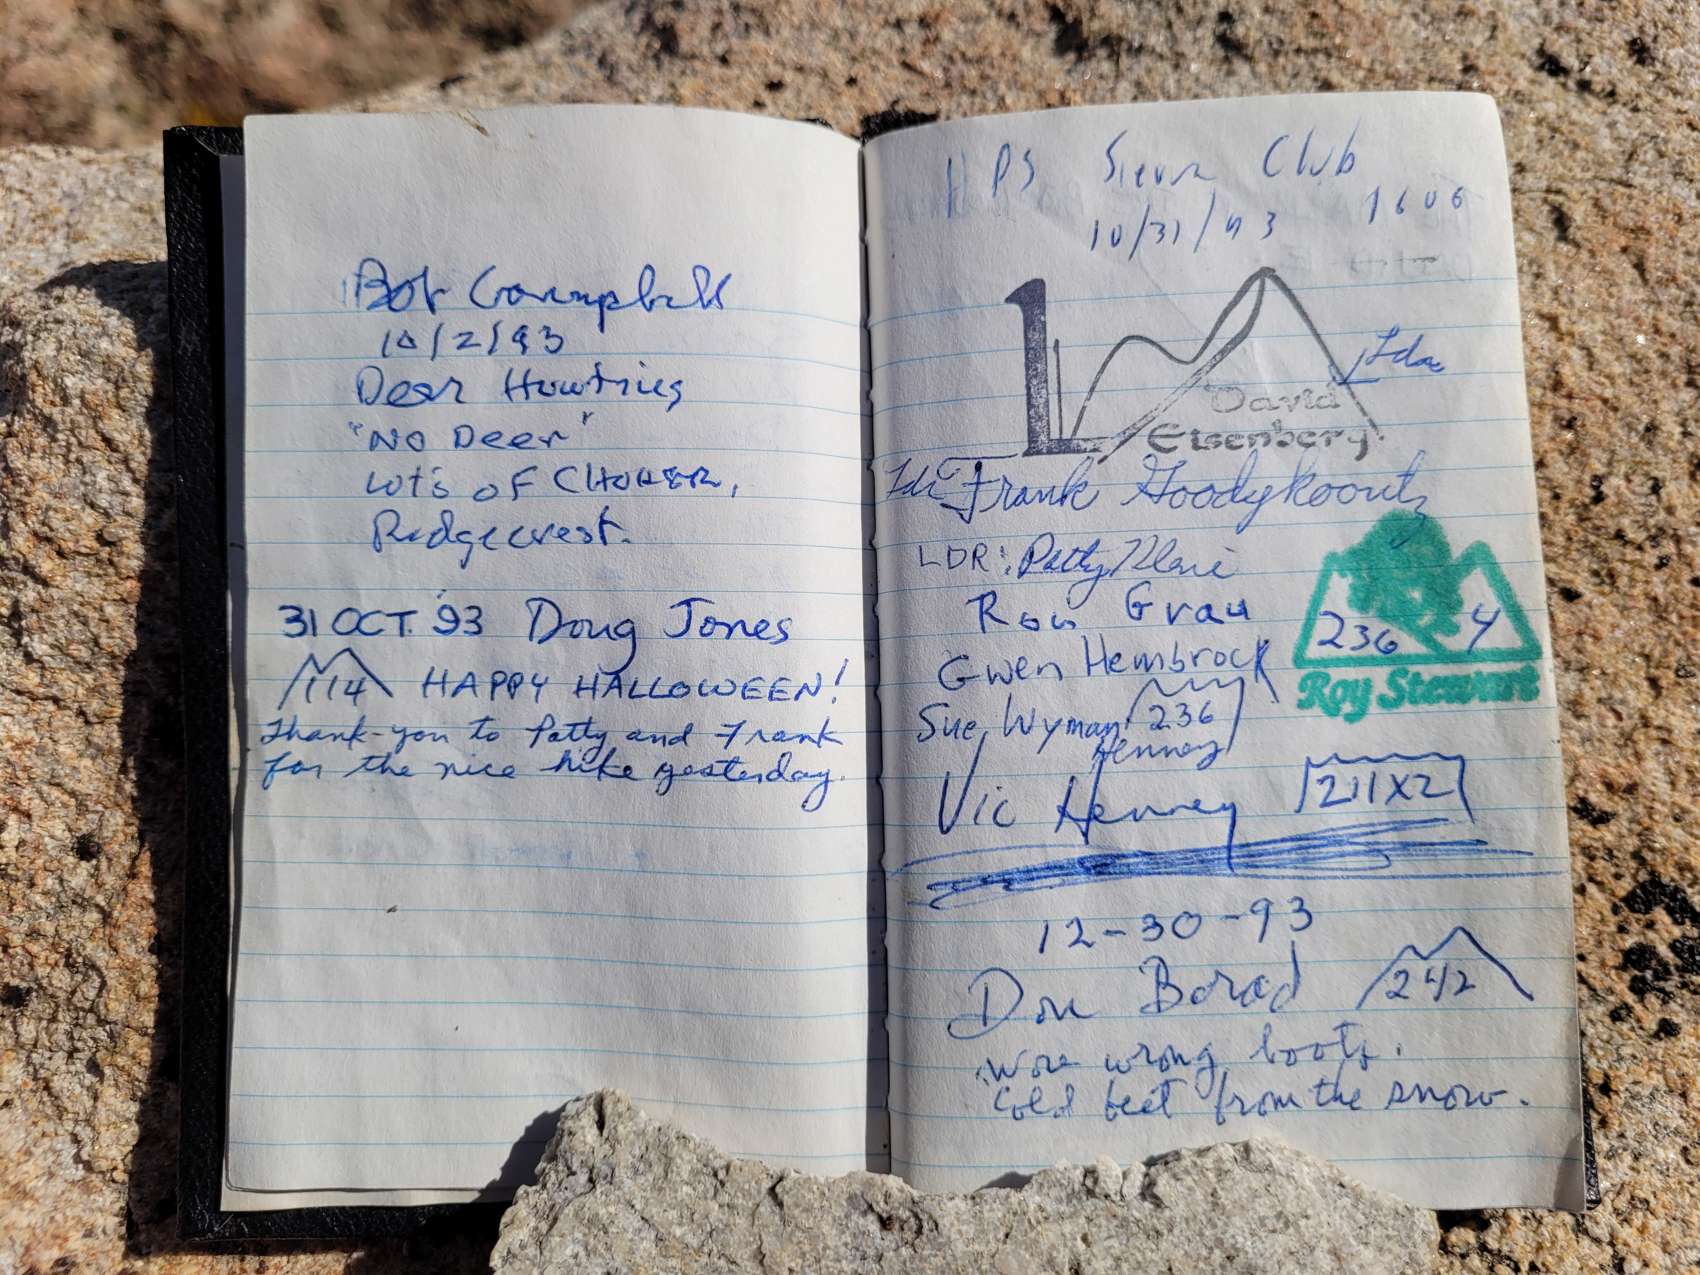 Bob Campbell
10/2/93
Deer Hunting
"No Deer"
Lots of CHUKER,
Ridgecrest.
31 OCT. '93 Doug Jones
114 HAPPY HALLOWEEN!
Thank-you to Patty and Frank
for the nice hike yesterday.
HPS Sierra Club
10/31/93 1606
1
Ldr
David
Eisenberg
Ldr Frank Goodykoontz
LDR: Patty Kline
Ron Grau
Gwen Hembrock
236 4
Roy Stewart
Sue Wyman 236
Henney
Vic Henney 211X2
12-30-93
Don Borad 242
Wore wrong boots.
Cold feet from the snow.